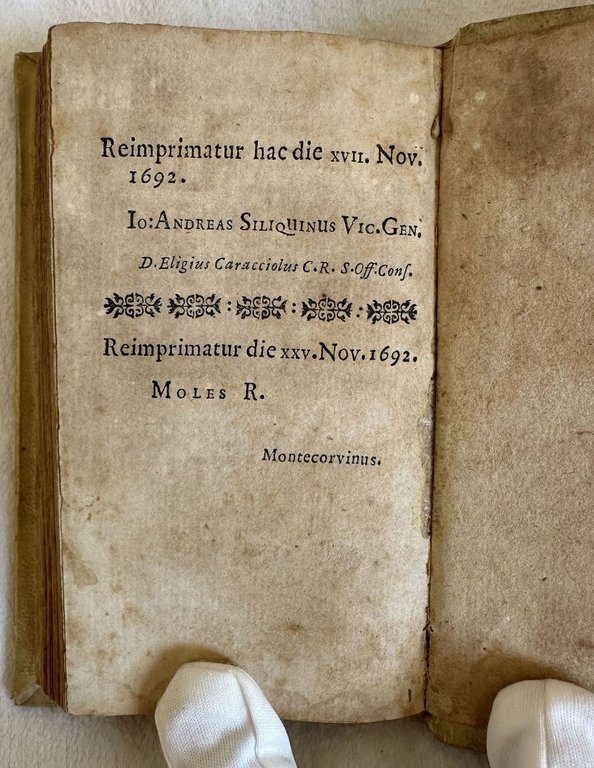 Reimprimatur hac die XVII. Nov.
1692.
Io: ANDREAS SILIQUINUS VIC. GEN.
D. Eligius Caracciolus C. R. S. Off. Conſ.
Reimprimatur die XXV. Nov. 1692.
MOLES R.
Montecorvinus.